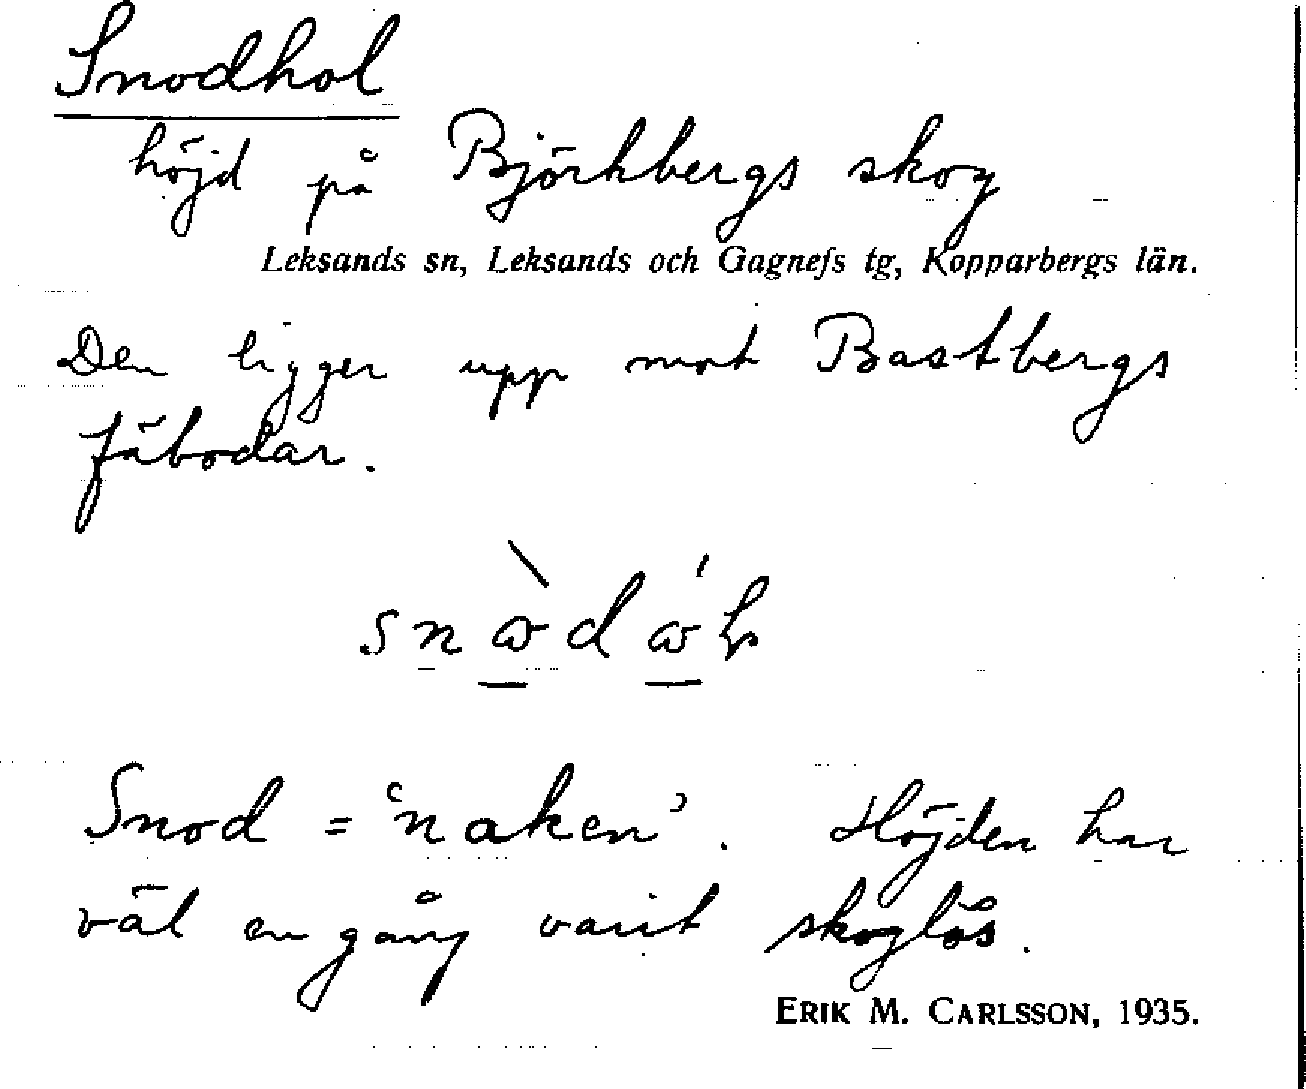 Snodhol
höjd på Björkbergs skog
Leksands sn, Leksands och Gagnefs tg, Kopparbergs län.
Den ligger upp mot Bastbergs
fäbodar.
Snod = 'naken'. Höjden har
väl en gång varit skoglös.
ERIK M. CARLSSON, 1935.